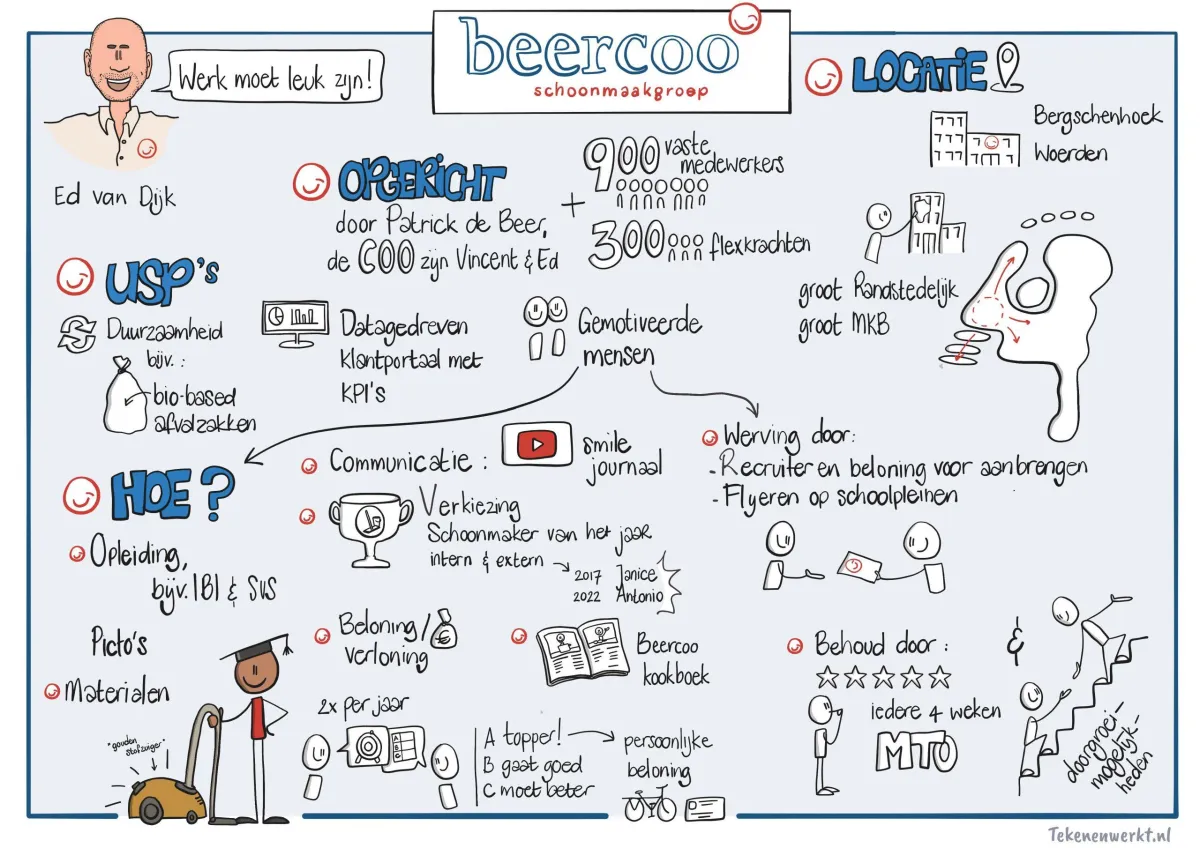 beercoo
schoonmaakgroep
Werk moet leuk zijn!
Ed van Dijk
LOCATIE
Bergschenhoek
Woerden
groot Randstedelijk
groot MKB
OPGERICHT
door Patrick de Beer,
de COO zijn Vincent & Ed
+
900 vaste
medewerkers
300 flexkrachten
USP's
Duurzaamheid
bijv.:
bio-based
afvalzakken
Datagedreven
klantportaal met
KPI's
Gemotiveerde
mensen
HOE?
Opleiding,
bijv. IBI & SVS
Picto's
Materialen
"gouden
stofzuiger"
Communicatie:
smile
journaal
Verkiezing
Schoonmaker van het jaar
intern & extern
2017 Janice
2022 Antonio
Beloning/
verloning
€
2x per jaar
A
B
C
A topper!
B gaat goed
C moet beter
persoonlijke
beloning
Beercoo
kookboek
Werving door:
- Recruiter en beloning voor aanbrengen
- Flyeren op schoolpleinen
Behoud door:
iedere 4 weken
MTO
&
doorgroei-
mogelijk-
heden
Tekenenwerkt.nl